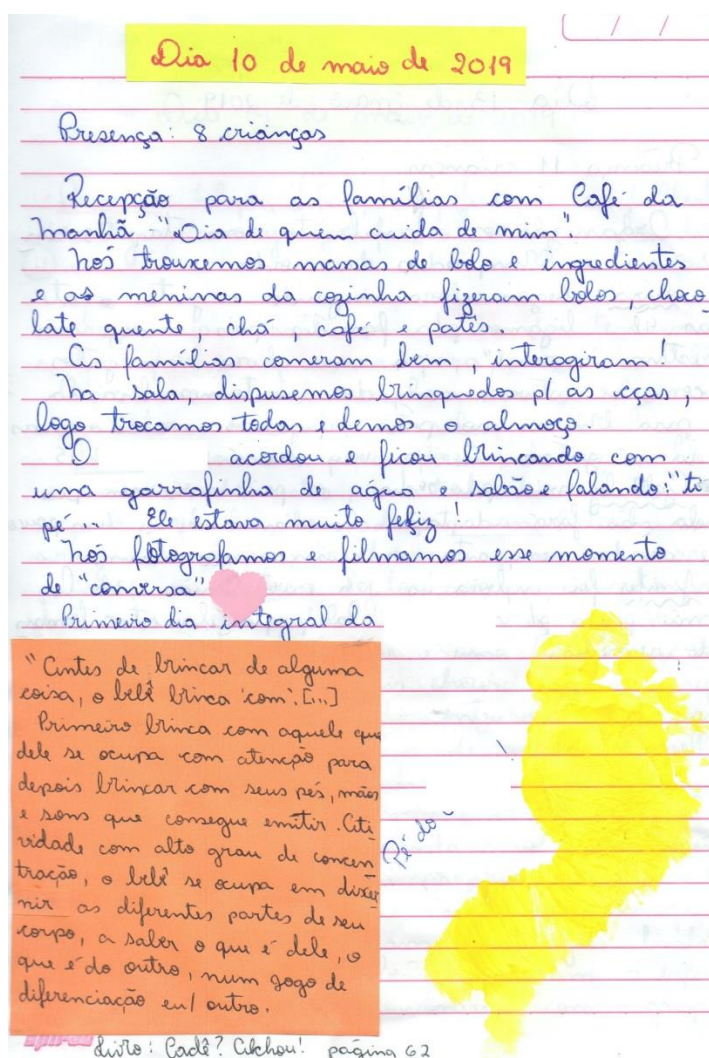 Dia 10 de maio de 2019
Presença: 8 crianças
Recepção para as famílias com Café da
manhã "Dia de quem cuida de mim".
Nós trouxemos massas de bolo e ingredientes
e as meninas da cozinha fizeram bolos, choco
late quente, chá, café e patês.
As famílias comeram bem, interagiram!
Na sala, dispusemos brinquedos p/ as cças,
logo trocamos todas e demos o almoço.
O acordou e ficou brincando com
uma garrafinha de água e sabão e falando: "ti
pé... Ele estava muito feliz!
Nós fotografamos e filmamos esse momento
de "conversa"
Primeiro dia integral da
"Antes de brincar de alguma
coisa, o bebê brinca 'com'. [...]
Primeiro brinca com aquele que
dele se ocupa com atenção para
depois brincar com seus pés, mãos
e sons que consegue emitir. Ati
vidade com alto grau de concen
tração, o bebê se ocupa em discer
nir as diferentes partes de seu
corpo, a saber o que é dele, o
que é do outro, num gogo de
diferenciação eu/outro.
Pé do
Livro: Cadê? Achou! página 62